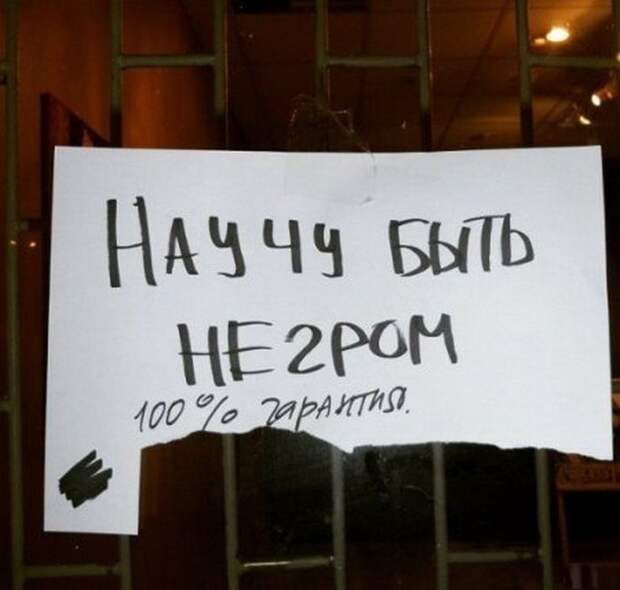 НАУЧУ БЫТЬ
НЕГРОМ
100% гарантия.